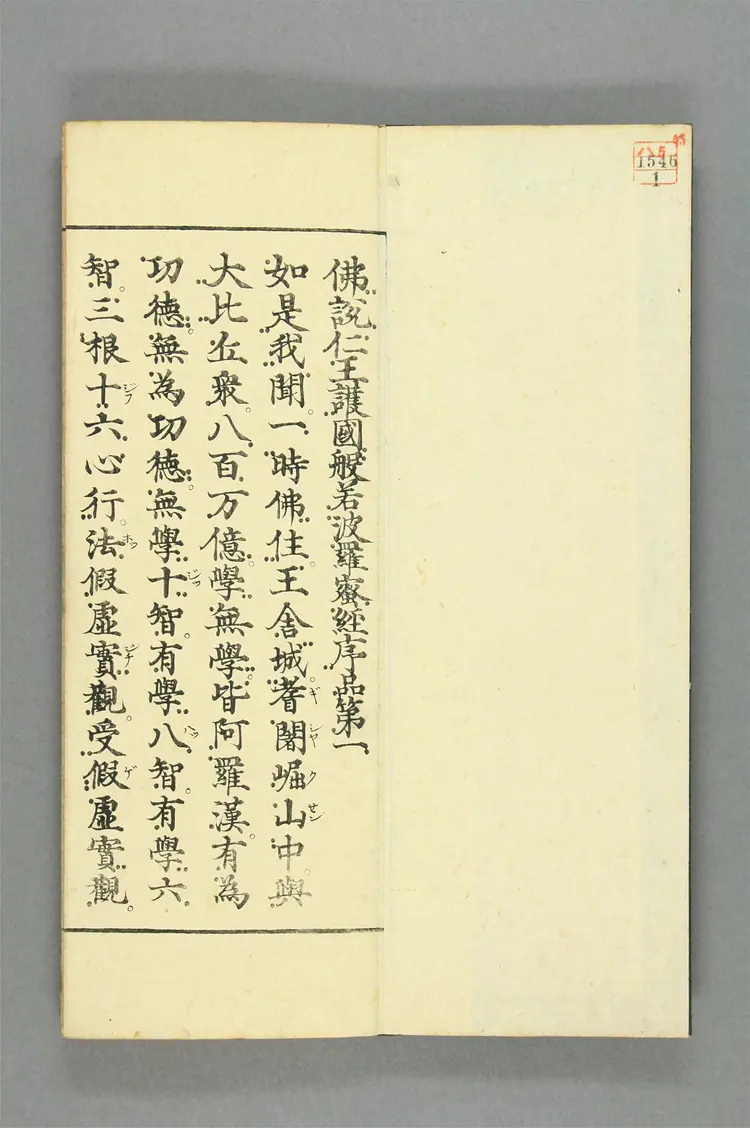 佛說仁王護國般若波羅蜜經序品第一
如是我聞一時佛住王舍城耆闍崛山中與
大比丘衆八百万億學無學皆阿羅漢有為
功德無為功德無學十智有學八智有學六
智三根十六心行法假虛實觀受假虛實觀
ギ
シヤ
ク
せン
ジツ
ハツ
ジフ
ホツ
ゲ
特
八5
1546
1